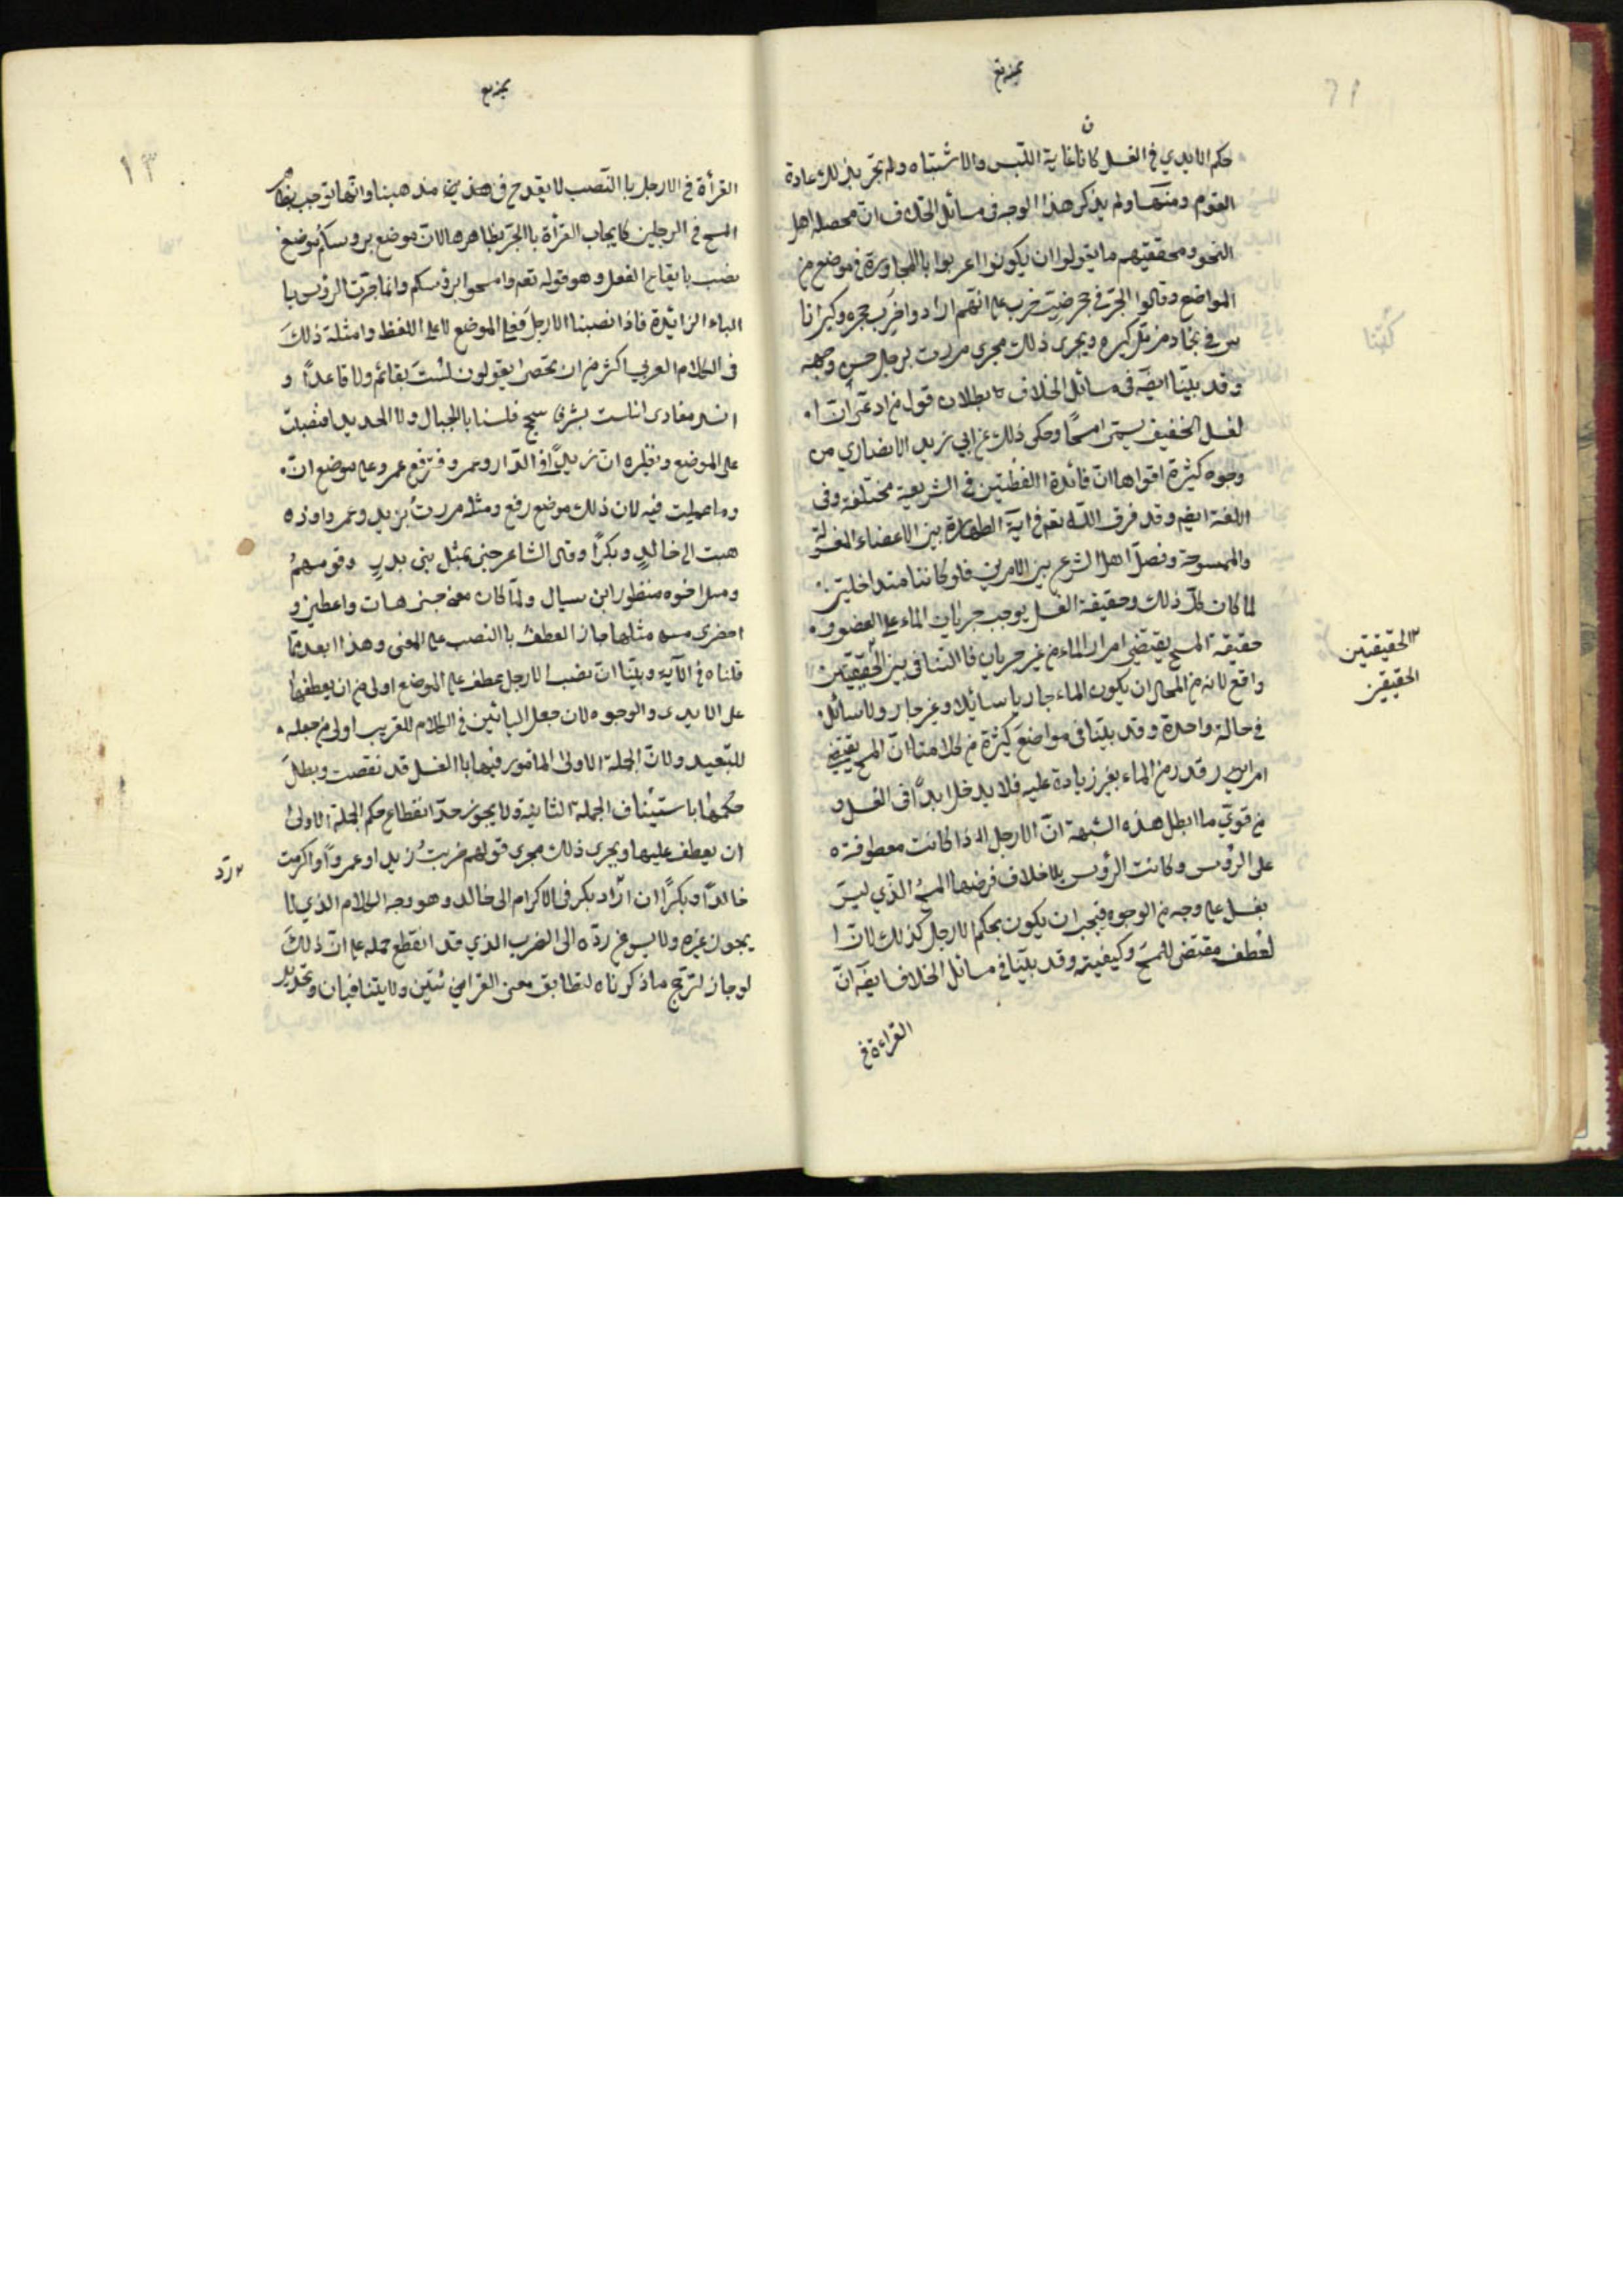 حكم الايدي في الغسل كانا غاية اللبس والاشتباه ولم تجر بذلك عادة
القوم ومنها ولم يذكر هذا الوجه في مسائل الخلاف ان محصله اهل
النحو ومحققيهم ما يقولوا ان يكونوا اعربوا بالمجاورة في موضع من
المواضع وقالوا الجر في جحر ضب خرب على انهم ارادوا خرب جحره وكبر اناس
س في بجاد مزمل كبيره ويجرى ذلك مجرى مررت برجل حسن وجهه
وقد بينا ايضه في مسائل الخلاف بطلان قول من ادعى ان ا
لغسل الخفيف يسمى امسحًا وحكى ذلك عن ابي زيد الانصاري من
وجوه كثيرة اقواها ان فائدة اللفظتين في الشريعية مختلفة وفي
اللغة ايضم وقد فرق الله تعم في آية الطهارة بين الاعضاء المغسولة
والممسوحة وفصل اهل الشرع بين الامرين فلو كانتا متداخلتين
لما كان كذلك وحقيقة الغسل يوجب جريان الماء على العضو و
حقيقة المسح يقتضي امرار الماء من غير جريان فا التنافي بين الحقيقتين
واقع لانه من المحال ان يكون الماء جاريا سائلا وغير جار ولا سائل
في حالة واحدة وقد بينا في مواضع كثيرة من كلامنا ان المسح يقتضي
امرار قدر من الماء بغير زيادة عليه فلا يدخل ابدًا في الغسل و
من قوي ما ابطل هذه الشبهة ان الارجل اذا كانت معطوفة
على الرؤس وكانت الرؤس بلا خلاف فرضها المسح الذي ليس
بغسل على وجه من الوجوه فيجب ان يكون بحكم الارجل كذلك لان ا
لعطف مقتض للمسح وكيفيته وقد بينا في مسائل الخلاف ايضه ان
القراءة في
الحقيقتين
الحقيقين
١٣
القرأة في الارجل با النصب لا يقدح في مذهبنا وانها توجب بظا
المسح في الرجلين كايجاب القرأة با الجر بظاهرها لان موضع برؤسكم موضع
نصب بايقاع الفعل وهو قوله تعم وامسحوا برؤسكم وانما جرت الرؤس با
الباء الزائدة فاذا نصبنا الارجل فعلى الموضع لا على اللفظ وامثلة ذلك
في الكلام العربي اكثر من ان تحصى يقولون لست بقائم ولا قاعدًا و
معاوى اننا بشر فا سجح فلسنا با الجبال ولا الحديدا فنصبت
على الموضع ونظيره ان زيدًا في الدار وعمرو فترفع عمرو على موضع ان
وما عملت فيه لان ذلك موضع رفع ومثله مررت بزيد وعمروا وذ
هبت الى خالدٍ وبكرًا وقال الشاعر جئنى بمثل بنى بدرٍ وقومهم
ومثل اخوه منظور ابن سيال ولما كان معنى جئنى هات واعطنى و
احضرى مثلهم جاز العطف با النصب على المعنى وهذا ابعد مما
قلناه في الآية وبينا ان نصب الارجل عطف على الموضع اولى من ان يعطفها
على الايدى والوجوه لان جعل التاثير في الكلام للقريب اولى من جعله
للبعيد ولان الجملة الاولى المامور فيها با الغسل قد نقضت وبطل
حكمها باستيناف الجملة الثانية ولا يجوز حد انقطاع حكم الجملة الاولى
ان يعطف عليها ويجرى ذلك مجرى قولهم ضربت زيدا وعمروًا واكرمت
خالدًا وبكرًا ان اراد بكر في الاكرام الى خالد وهو وجه الكلام الذي لا
يجوز غيره ولا يسوغ رده الى الضرب الذي قد انقطع حمله على ان ذلك
لو جاز لترجح ما ذكرناه لتطابق معنى القرائتين ولا يتنافيان وتحديد
رد